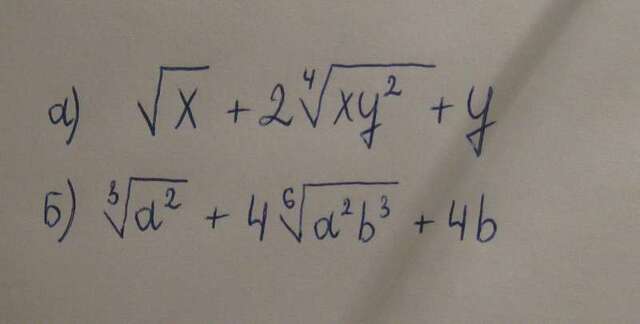 а) √x + 2∜(xy²) + y
б) ∛(a²) + 4⁶√(a²b³) + 4b